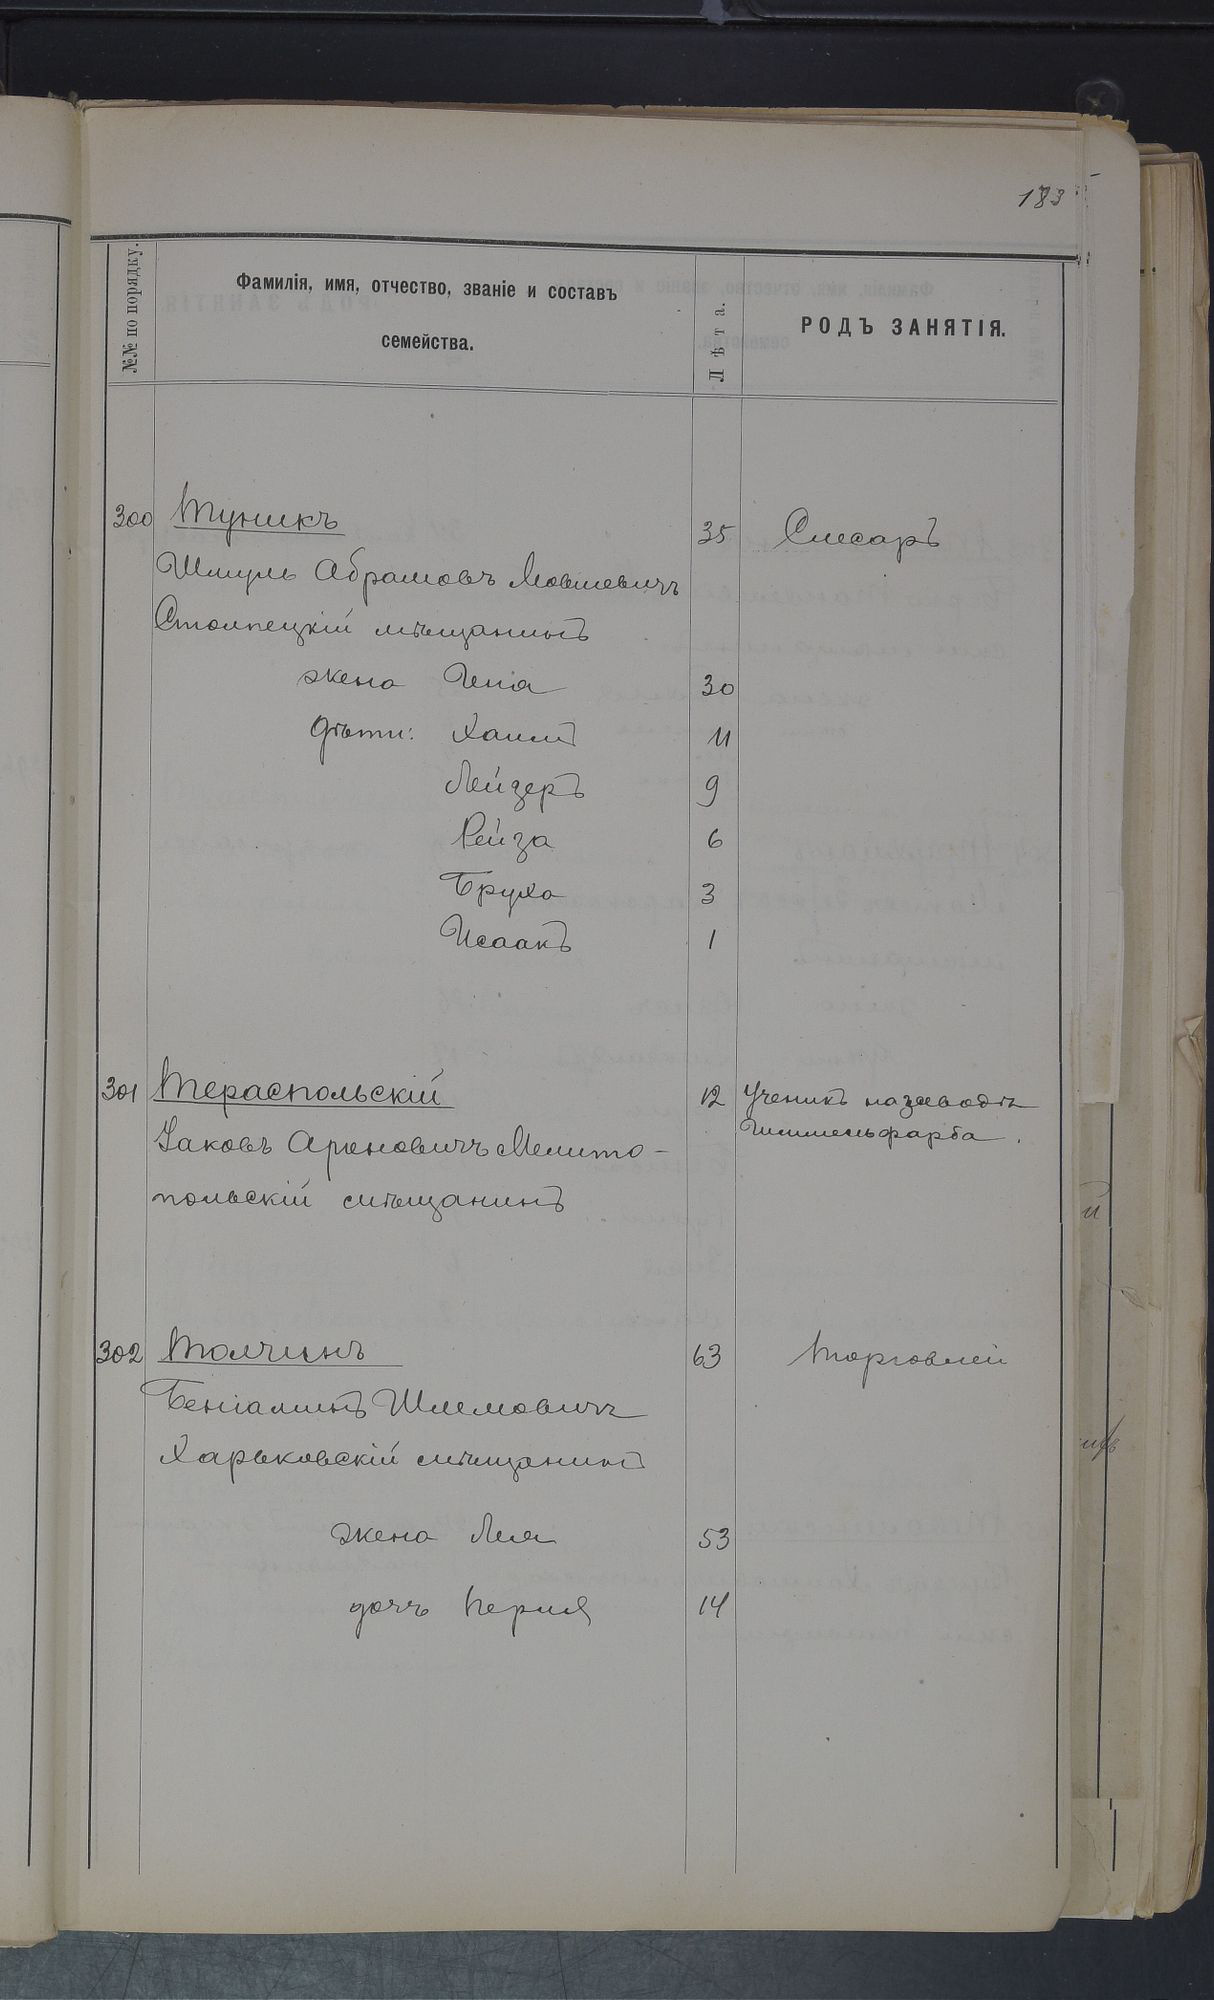 183
№№ по порядку.
Фамилія, имя, отчество, званіе и составъ
семейства.
Лѣта.
РОДЪ ЗАНЯТІЯ.
300 Туникъ 35 Слесарь
Шмуль Абрамовъ Мовшевичъ
Столпецкій мѣщанинъ
жена Гена 30
дѣти: Хаимъ 11
Лейзеръ 9
Рейза 6
Бруха 3
Исаакъ 1
301 Тераспольскій 12 Ученикъ на заводѣ
Гиммельфарба.
Яковъ Ароновичъ Мелито-
польскій мѣщанинъ
302 Толчинъ 63 Торговлей
Беніаминъ Шлемовичъ
Харьковскій мѣщанинъ
жена Лея 53
дочь Перля 14